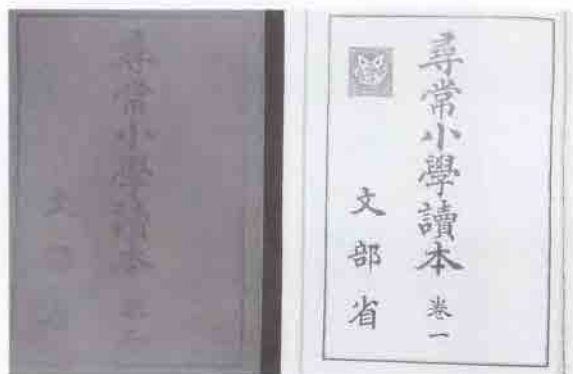 尋常小學讀本
文部
尋常小學讀本
卷一
文部省